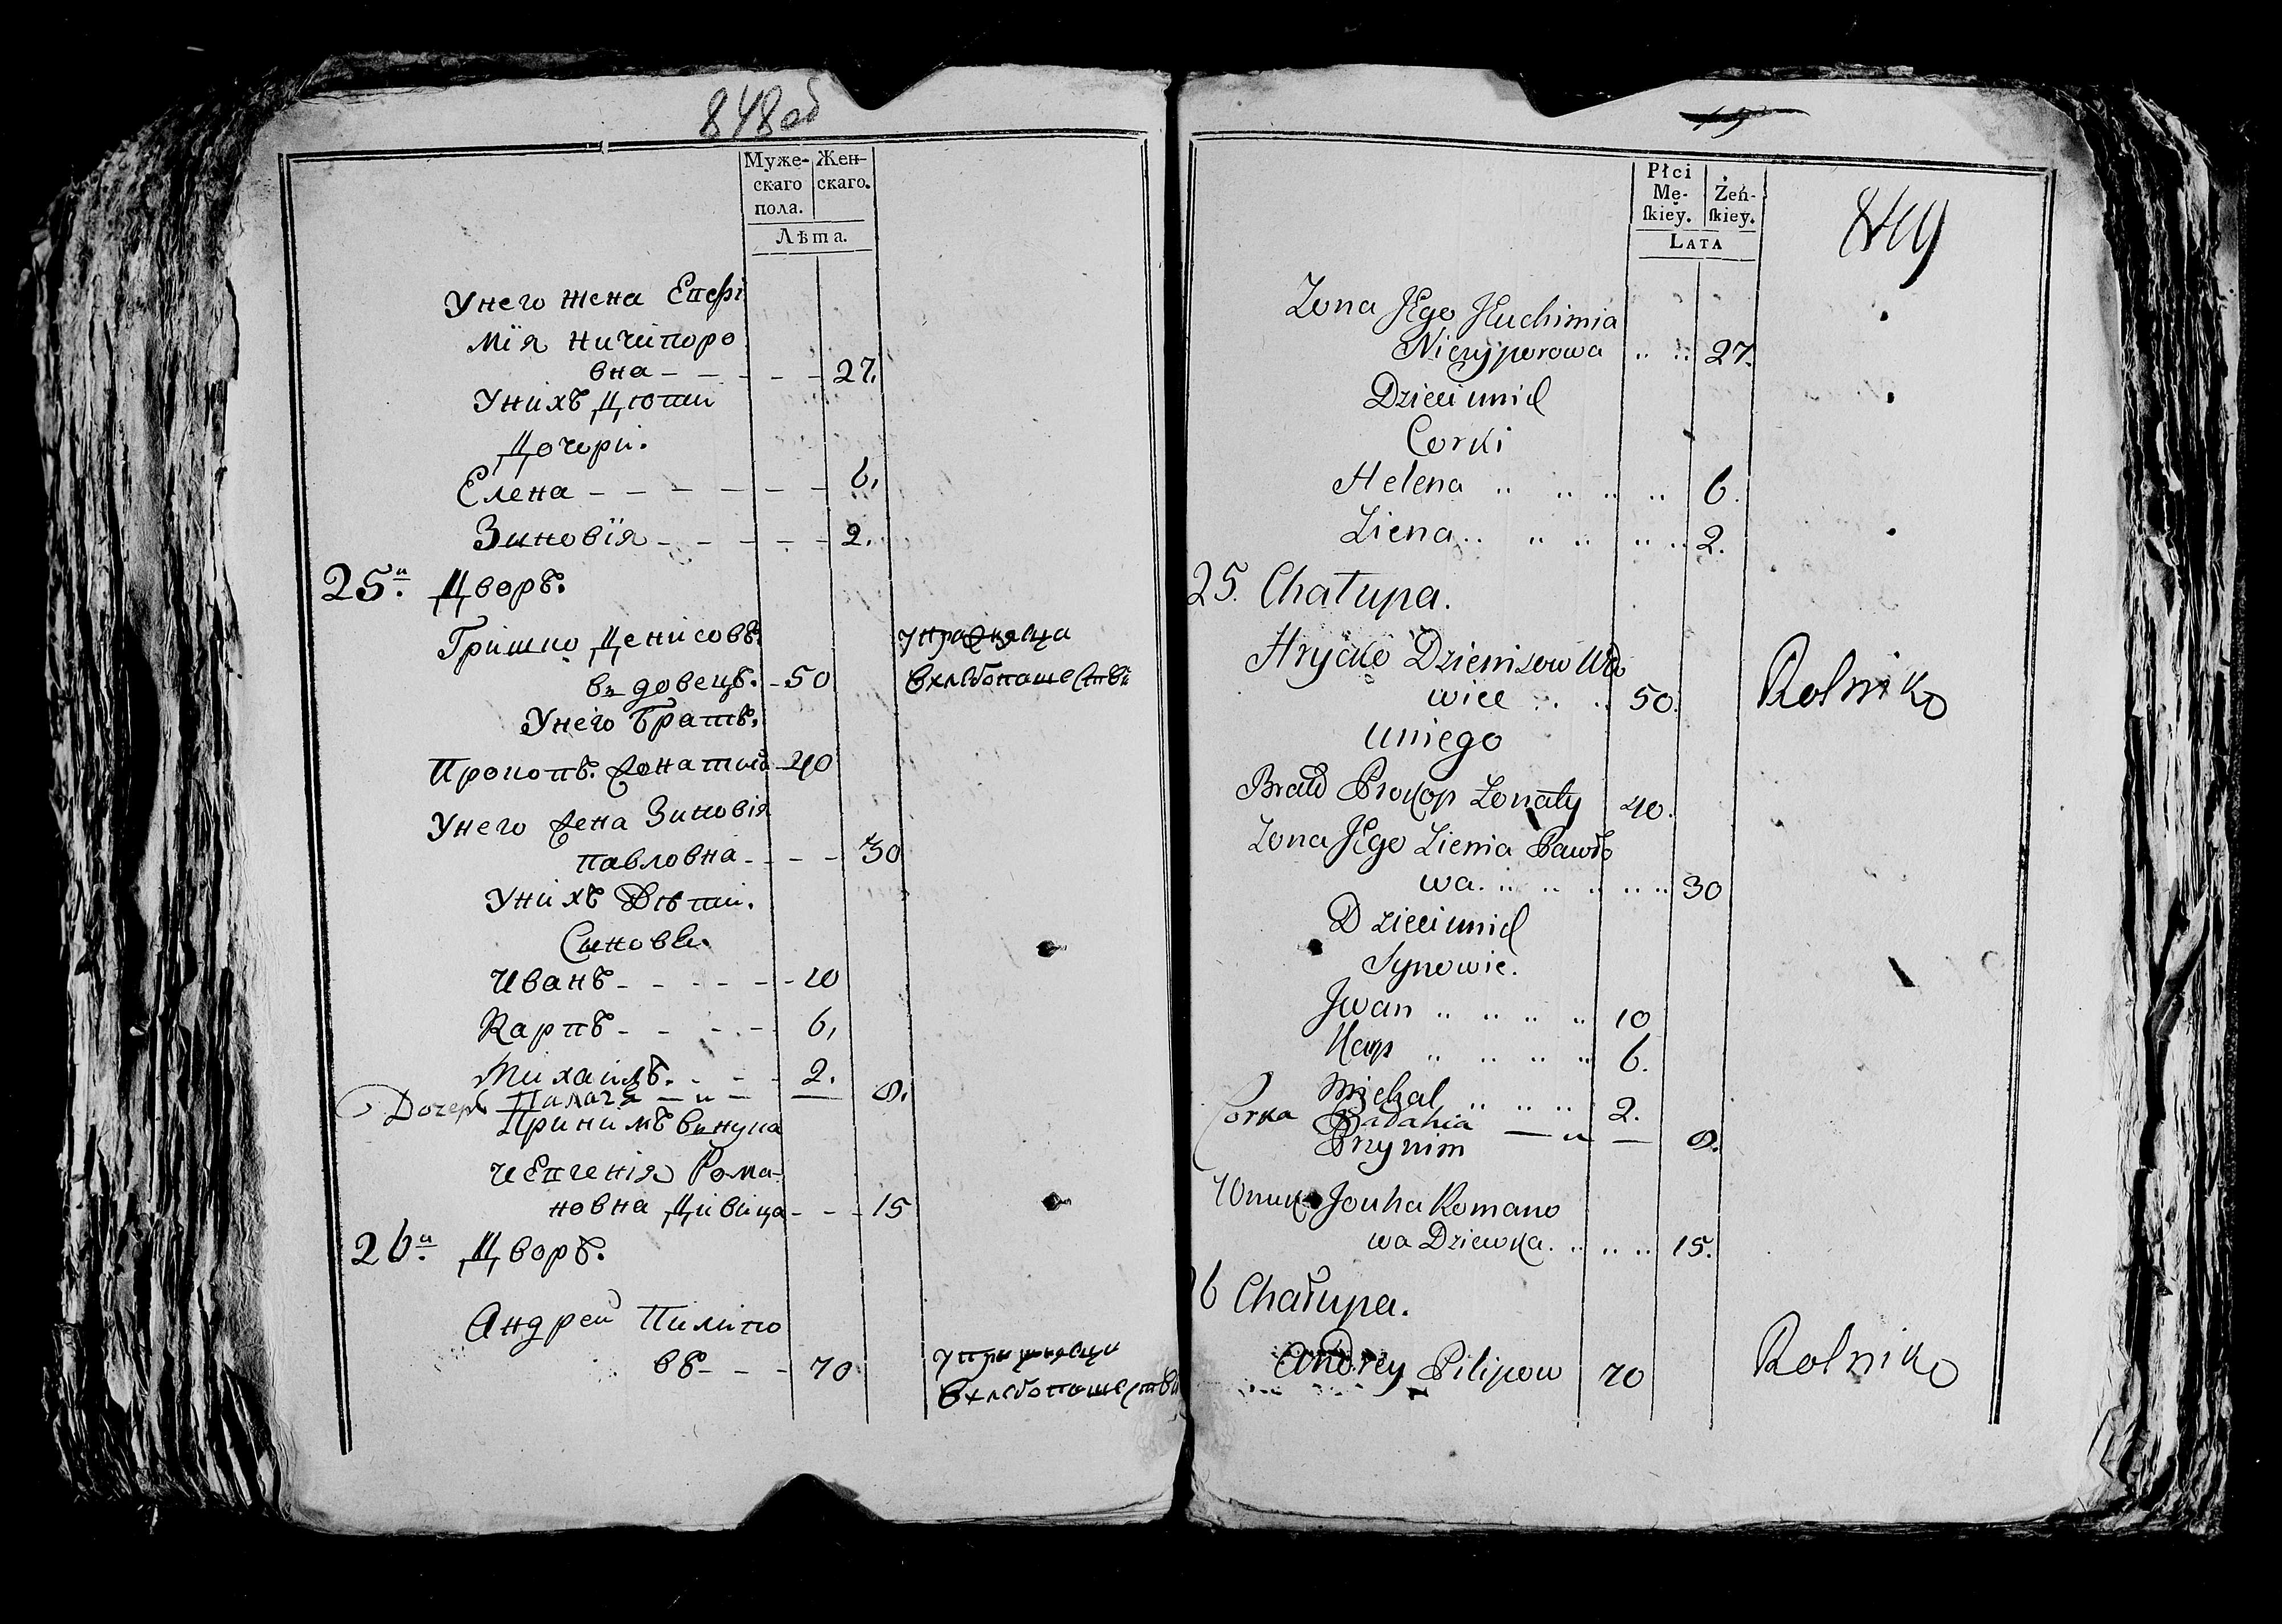 848 об
Муже- Жен-
скаго скаго.
пола.
Лѣта.
Унего жена Епефі
мія ничипоро
вна - - - - - 27.
Унихъ Дѣти
Дочери.
Елена - - - - - - 6.
Зиновія - - - - - 2.
25.й Дворъ.
Гришко Денисовъ
вдовецъ. - 50 вхлѣбопашестви
Унего Братъ.
Прокопъ. Женатий - 40
Унего жена Зиновія
павловна - - - 30
Унихъ Дѣти.
Синовъи.
Иванъ - - - - - 10
Карпъ - - - - 6,
Михаилъ. - - - 2.
Дочерь Палагя — „ — — 8.
Принимъ внука
Романовна Дивица - - - 15
26.й Дворъ.
Андрей Пилипо
въ - - - 70.
вхлѣбопашестви
19
Płci
Mę- Żeń-
ſkiey. ſkiey.
LATA
849
Zona Jego Jeuchimia
Niczyporowa .. .. 27.
Dzieci unich
Corki
Helena .. .. .. .. 6.
Ziena .. .. .. .. .. 2.
25. Chałupa.
Hrycko Dzienisow Wdo
wiec .. .. 50. Rolniko
uniego
Bratt Prokop Zonaty 40.
Zona Jego Zienia Pawło
wa. .. .. .. .. .. 30
Dzieci unich
Synowie.
Jwan .. .. .. .. 10
Karp .. .. .. .. 6.
Michal .. .. .. 2.
Corka Padahia — „ — 8.
Przynim
Wnuka Jouha Romano
wa Dziewka. .. .. .. 15.
6 Chałupa.
Andrey Pilipow 70 Rolniko